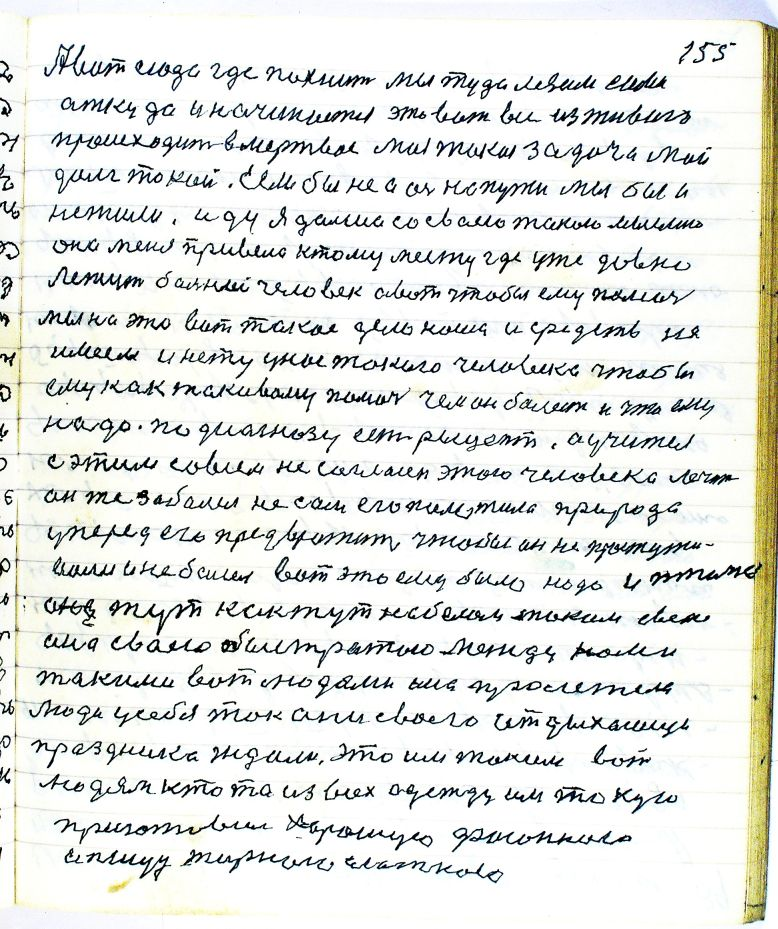 155
А вот сюда где пахнит мы туда лезим сами
аткуда и начинается это вот все из живого
происходит в мертвое мы такая задача мой
долг такой. Если бы не
не жили. иду я далша со своею такою мыслию
она меня привела ктому месту где уже давно
Лежит баяный человек а вот чтобы ему помоч
мы на это вот такое дело наша и средств не
имеем и нету унас такого человека чтобы
ему как таковому помоч чем он балеит и что ему
надо. по диагнозу ест рицепт, а учител
с этим совсем не согласен этого человека лечит
он же забалел не сам его природа
уперед его предвратит, чтобы он не простужи-
вали и небалел вот это ему было надо и
тут как тут на белом таком свете
она своею быстратою между нами
такими вот людями она пролетела
люди усебя так они своего
праздника ждали, это им таким вот
людям кто та из всех одежду им такую
приготовил харошую фасонною
а пищу жирною слаткою